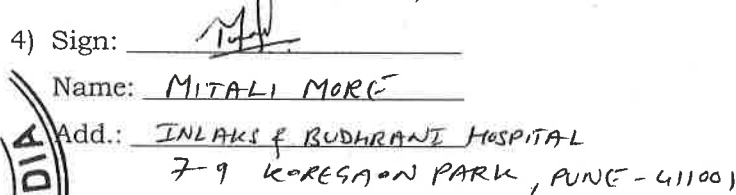 4) Sign:
Name: MITALI MORE
Add.: INLAKS & BUDHRANI HOSPITAL
7-9 KOREGAON PARK, PUNE - 411001
DIA